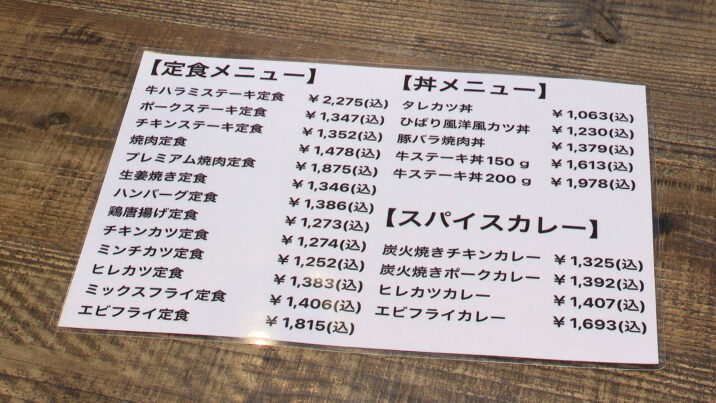 【定食メニュー】
牛ハラミステーキ定食 ￥2,275(込)
ポークステーキ定食 ￥1,347(込)
チキンステーキ定食 ￥1,352(込)
焼肉定食 ￥1,478(込)
プレミアム焼肉定食 ￥1,875(込)
生姜焼き定食 ￥1,346(込)
ハンバーグ定食 ￥1,386(込)
鶏唐揚げ定食 ￥1,273(込)
チキンカツ定食 ￥1,274(込)
ミンチカツ定食 ￥1,252(込)
ヒレカツ定食 ￥1,383(込)
ミックスフライ定食 ￥1,406(込)
エビフライ定食 ￥1,815(込)
【丼メニュー】
タレカツ丼 ￥1,063(込)
ひばり風洋風カツ丼 ￥1,230(込)
豚バラ焼肉丼 ￥1,379(込)
牛ステーキ丼150ｇ ￥1,613(込)
牛ステーキ丼200ｇ ￥1,978(込)
【スパイスカレー】
炭火焼きチキンカレー ￥1,325(込)
炭火焼きポークカレー ￥1,392(込)
ヒレカツカレー ￥1,407(込)
エビフライカレー ￥1,693(込)